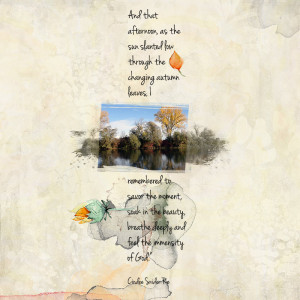 And that
afternoon, as the
sun slanted low
through the
changing autumn
leaves, I
remembered to
savor the moment,
soak in the beauty,
breathe deeply and
feel the immensity
of God."